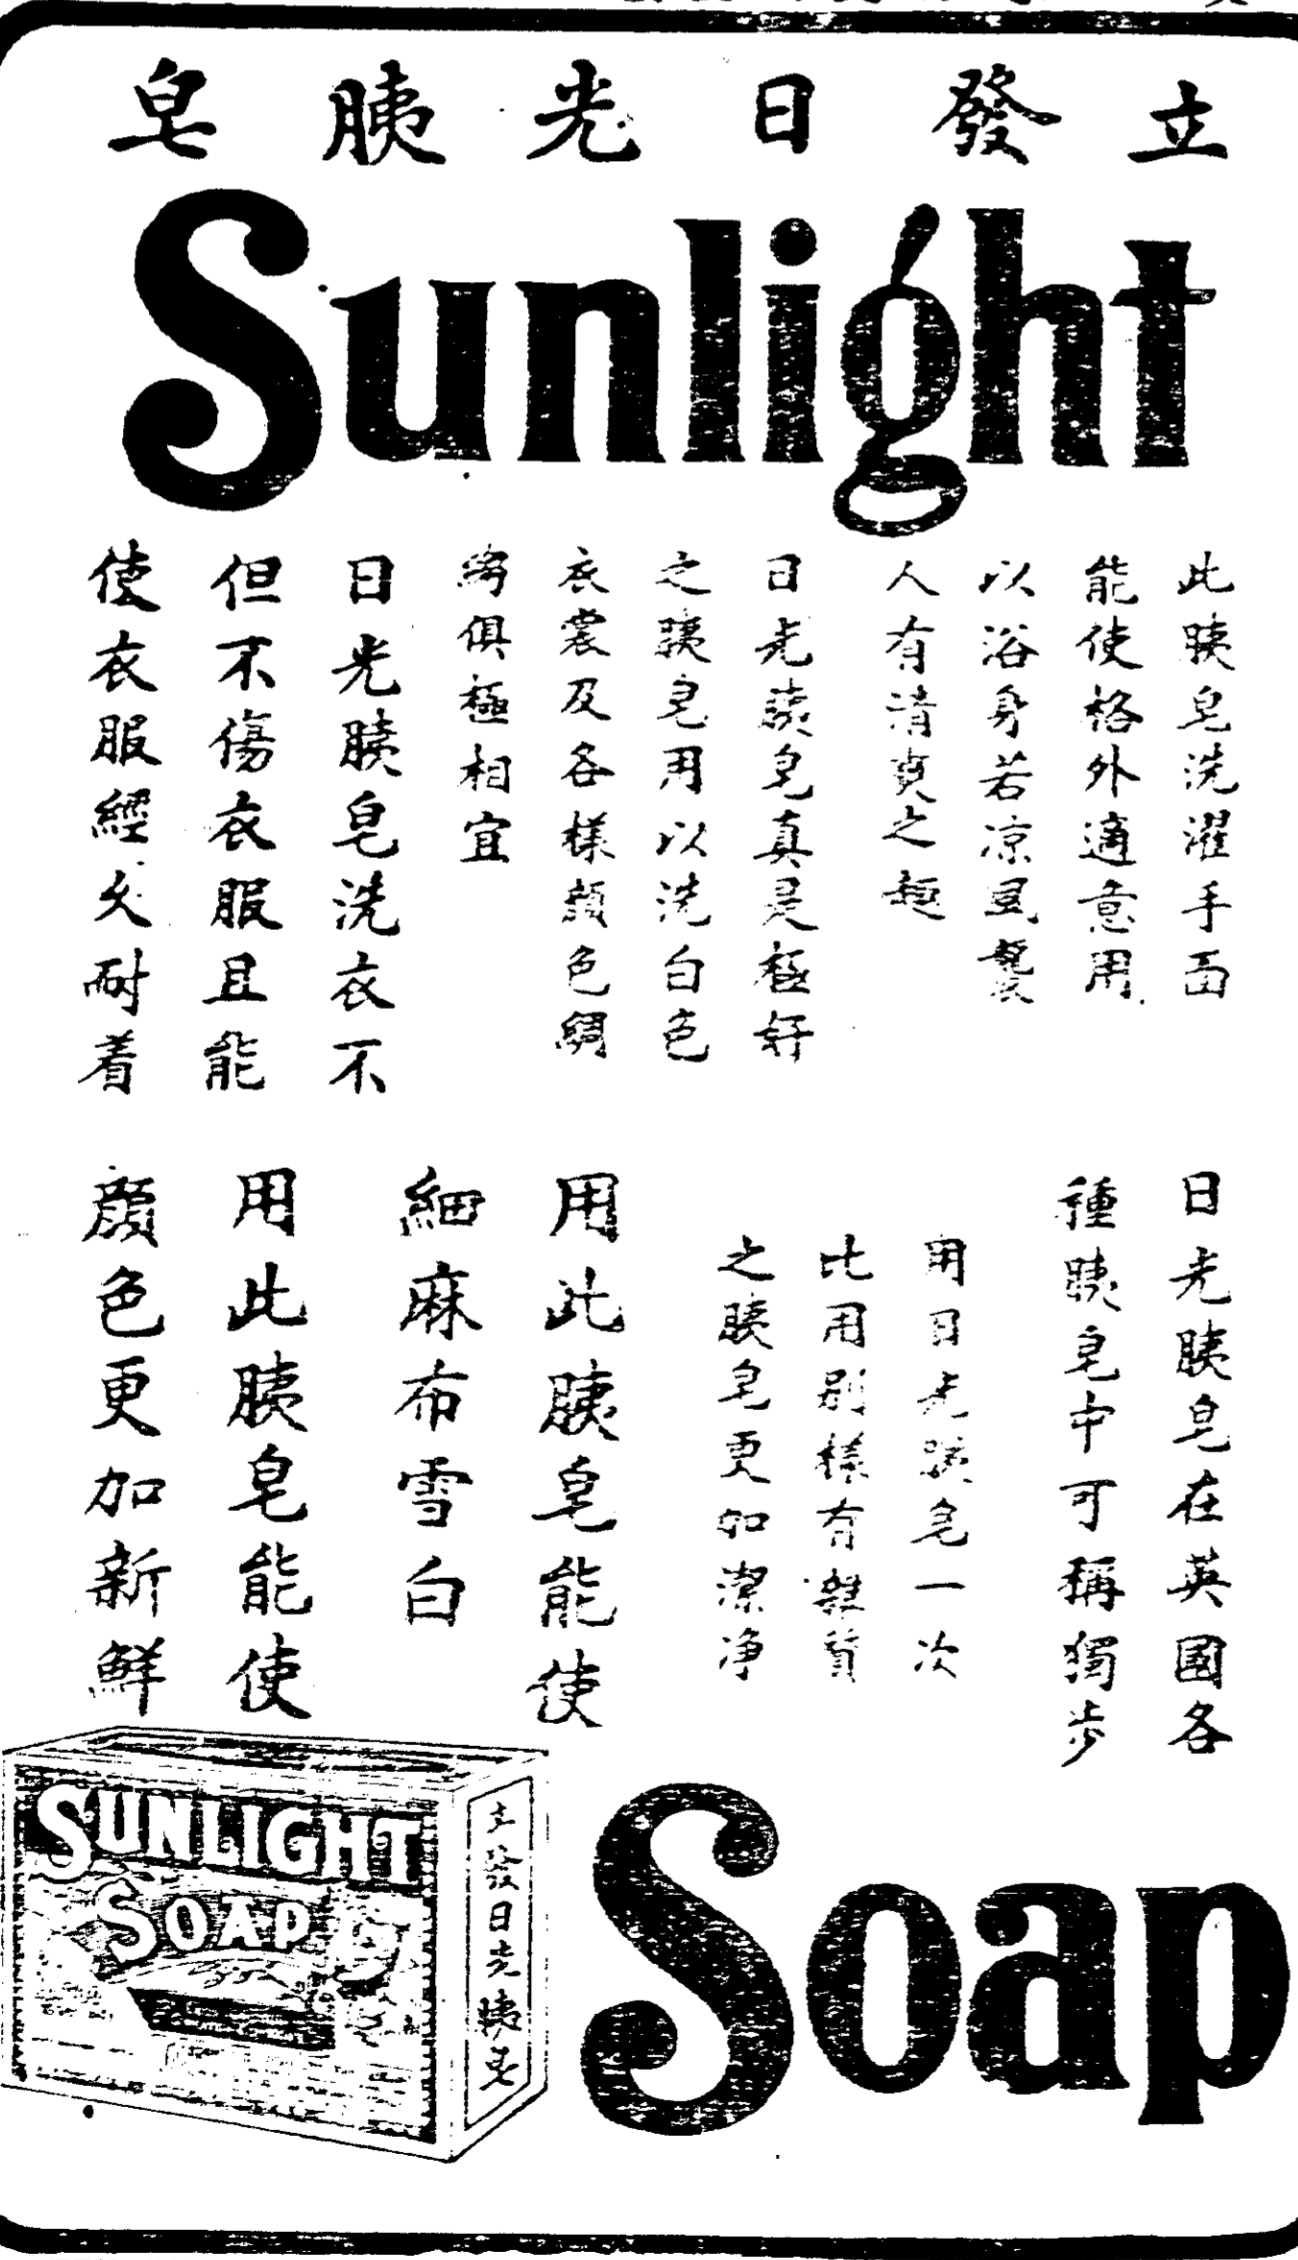 立發日光胰皂
Sunlight
此胰皂洗濯手面
能使格外適意用
以浴身若凉風襲
人有清爽之趣
日光胰皂真是極好
之胰皂用以洗白色
衣裳及各樣顏色綢
俱極相宜
日光胰皂洗衣不
但不傷衣服且能
使衣服經久耐着
日光胰皂在英國各
種胰皂中可稱獨步
用日光胰皂一次
比用别樣有雜質
之胰皂更加潔净
用此胰皂能使
細麻布雪白
用此胰皂能使
顏色更加新鮮
SUNLIGHT
SOAP
立發日光胰皂
Soap